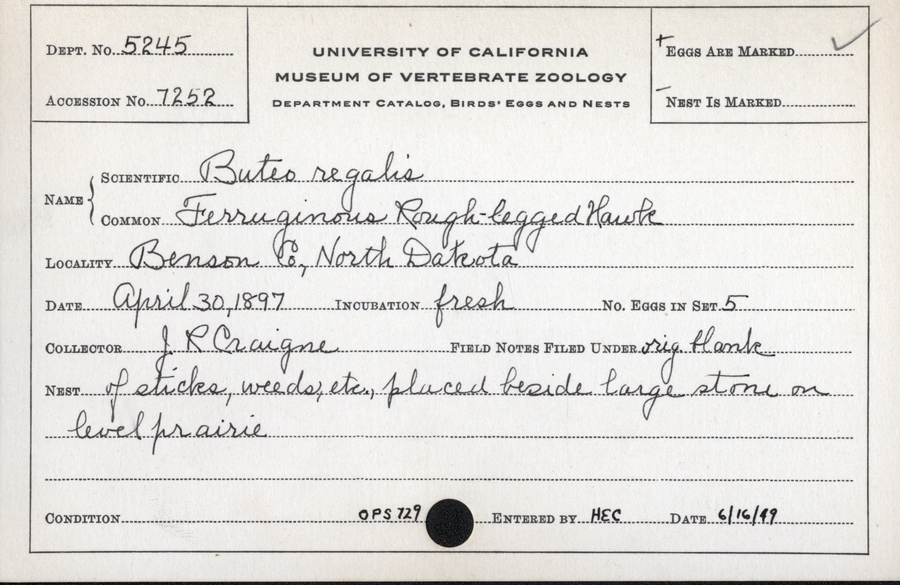 Dept. No. 5245
Accession No. 7252
UNIVERSITY OF CALIFORNIA
MUSEUM OF VERTEBRATE ZOOLOGY
Department Catalog, Birds' Eggs and Nests
+ Eggs Are Marked ✓
- Nest Is Marked
Name { Scientific Buteo regalis
Common Ferruginous Rough-legged Hawk
Locality Benson Co., North Dakota
Date April 30, 1897 Incubation fresh No. Eggs in Set 5
Collector J. R Craigne Field Notes Filed Under orig. blank
Nest of sticks, weeds, etc., placed beside large stone on
level prairie
Condition OPS 729 Entered by HEC Date 6/16/49